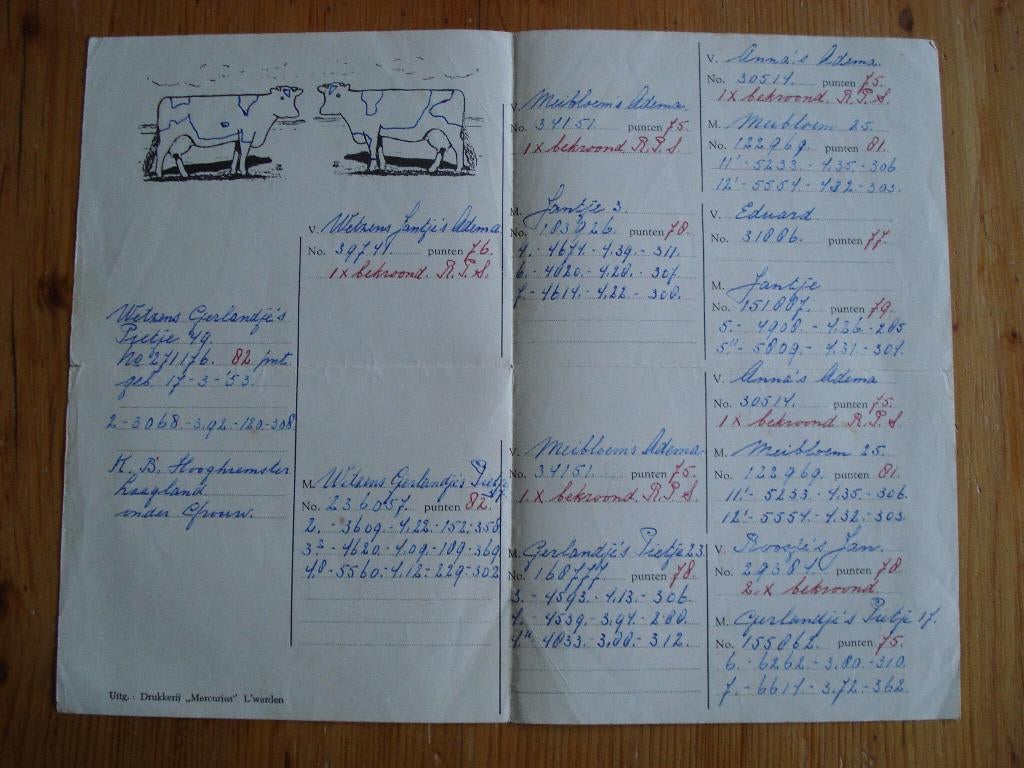 Wetzens Gerlandje's
Pietje 49.
No 271176. 82 pnt
geb. 17-3-'53.
2-3068.-3.92.-120-308
K. B. Hooghiemster
Laagland
onder Grouw.
Uitg.: Drukkerij „Mercurius" L'warden
V. Wetzens Jantje's Adema
No. 39741. punten 76.
1 x bekroond. R.P.S.
M. Witzens Gerlandje's Pietje
No. 236057. punten 82.
2. - 3609. - 4.22 - 152. - 358
4.8 - 5560. - 4.12 - 229 - 302
V. Meibloem's Adema.
No. 34151. punten 75.
1 x bekroond R.P.S
M. Jantje 3.
No. 183026. punten 78.
4. - 4671. - 4.39. - 311.
6. - 4020. - 4.20. - 307.
7. - 4614. - 4.22. - 300.
V. Meibloem's Adema
No. 34151. punten 75.
1 x bekroond R.P.S
M. Gerlandje's Pietje 23.
No. 168777. punten 78.
3. - 4593. - 4.13. - 306.
4. - 4539. - 3.94. - 280.
4." 4833. 3.88. - 312.
V. Anna's Adema.
No. 30514. punten 75.
1 x bekroond. R.P.S.
M. Meibloem 25.
No. 122969. punten 81.
11' - 5233. - 4.35. - 306
12' - 5554. - 4.32. - 303.
V. Eduard
No. 31086. punten 77.
M. Jantje
No. 151887. punten 79.
5. - 4908. - 4.26. - 285
5." - 5809. - 4.31. - 301.
V. Anna's Adema
No. 30514. punten 75.
1 x bekroond R.P.S
M. Meibloem 25.
No. 122969. punten 81.
11' - 5233. - 4.35. - 306.
12' - 5554. - 4.32. - 303.
V. Roosje's Jan.
No. 29381. punten 78.
2. x bekroond
M. Gerlandje's Pietje 17.
No. 155862. punten 75.
6. - 6262. - 3.80. - 310.
7. - 6614. - 3.72. - 362.